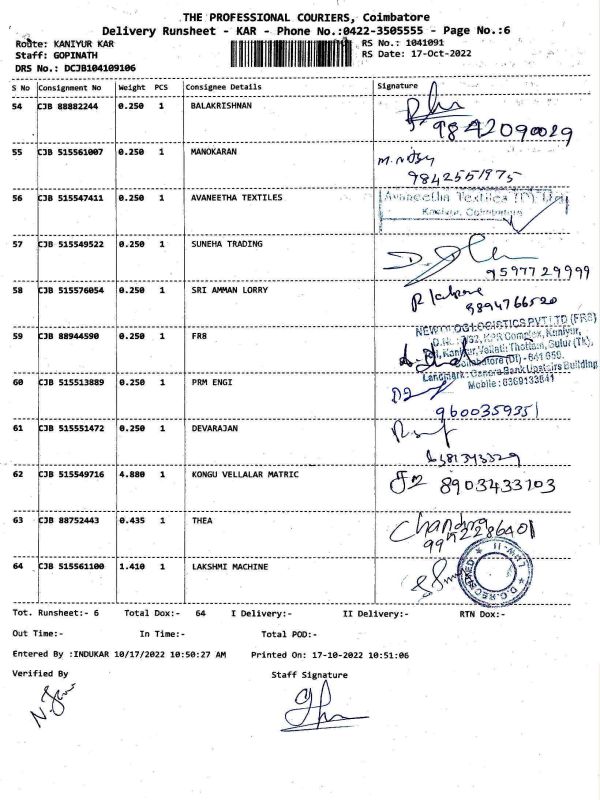 THE PROFESSIONAL COURIERS, Coimbatore
Delivery Runsheet - KAR - Phone No.:0422-3505555 - Page No.:6
Route: KANIYUR KAR RS No.: 1041091
Staff: GOPINATH RS Date: 17-Oct-2022
DRS No.: DCJB104109106
S No Consignment No Weight PCS Consignee Details Signature
54 CJB 88882244 0.250 1 BALAKRISHNAN
9842090029
55 CJB 515561007 0.250 1 MANOKARAN
9842551975
56 CJB 515547411 0.250 1 AVANEETHA TEXTILES Avaneetha Textiles (P) Ltd
Kaniyur, Coimbatore
57 CJB 515549522 0.250 1 SUNEHA TRADING
9597729999
58 CJB 515576054 0.250 1 SRI AMMAN LORRY
9894766520
59 CJB 88944590 0.250 1 FR8 LOGISTICS PVT LTD (FR8)
KPR Complex, Kaniyur,
Thottam, Sulur (Tk),
Coimbatore (Dt) - 641 659.
60 CJB 515513889 0.250 1 PRM ENGI Landmark: Canara Bank Upstairs Building
Mobile: 6369133841
9600359351
61 CJB 515551472 0.250 1 DEVARAJAN
62 CJB 515549716 4.880 1 KONGU VELLALAR MATRIC 8903433103
63 CJB 88752443 0.435 1 THEA Chandra
9942286401
64 CJB 515561100 1.410 1 LAKSHMI MACHINE
Tot. Runsheet:- 6 Total Dox:- 64 I Delivery:- II Delivery:- RTN Dox:-
Out Time:- In Time:- Total POD:-
Entered By :INDUKAR 10/17/2022 10:50:27 AM Printed On: 17-10-2022 10:51:06
Verified By Staff Signature